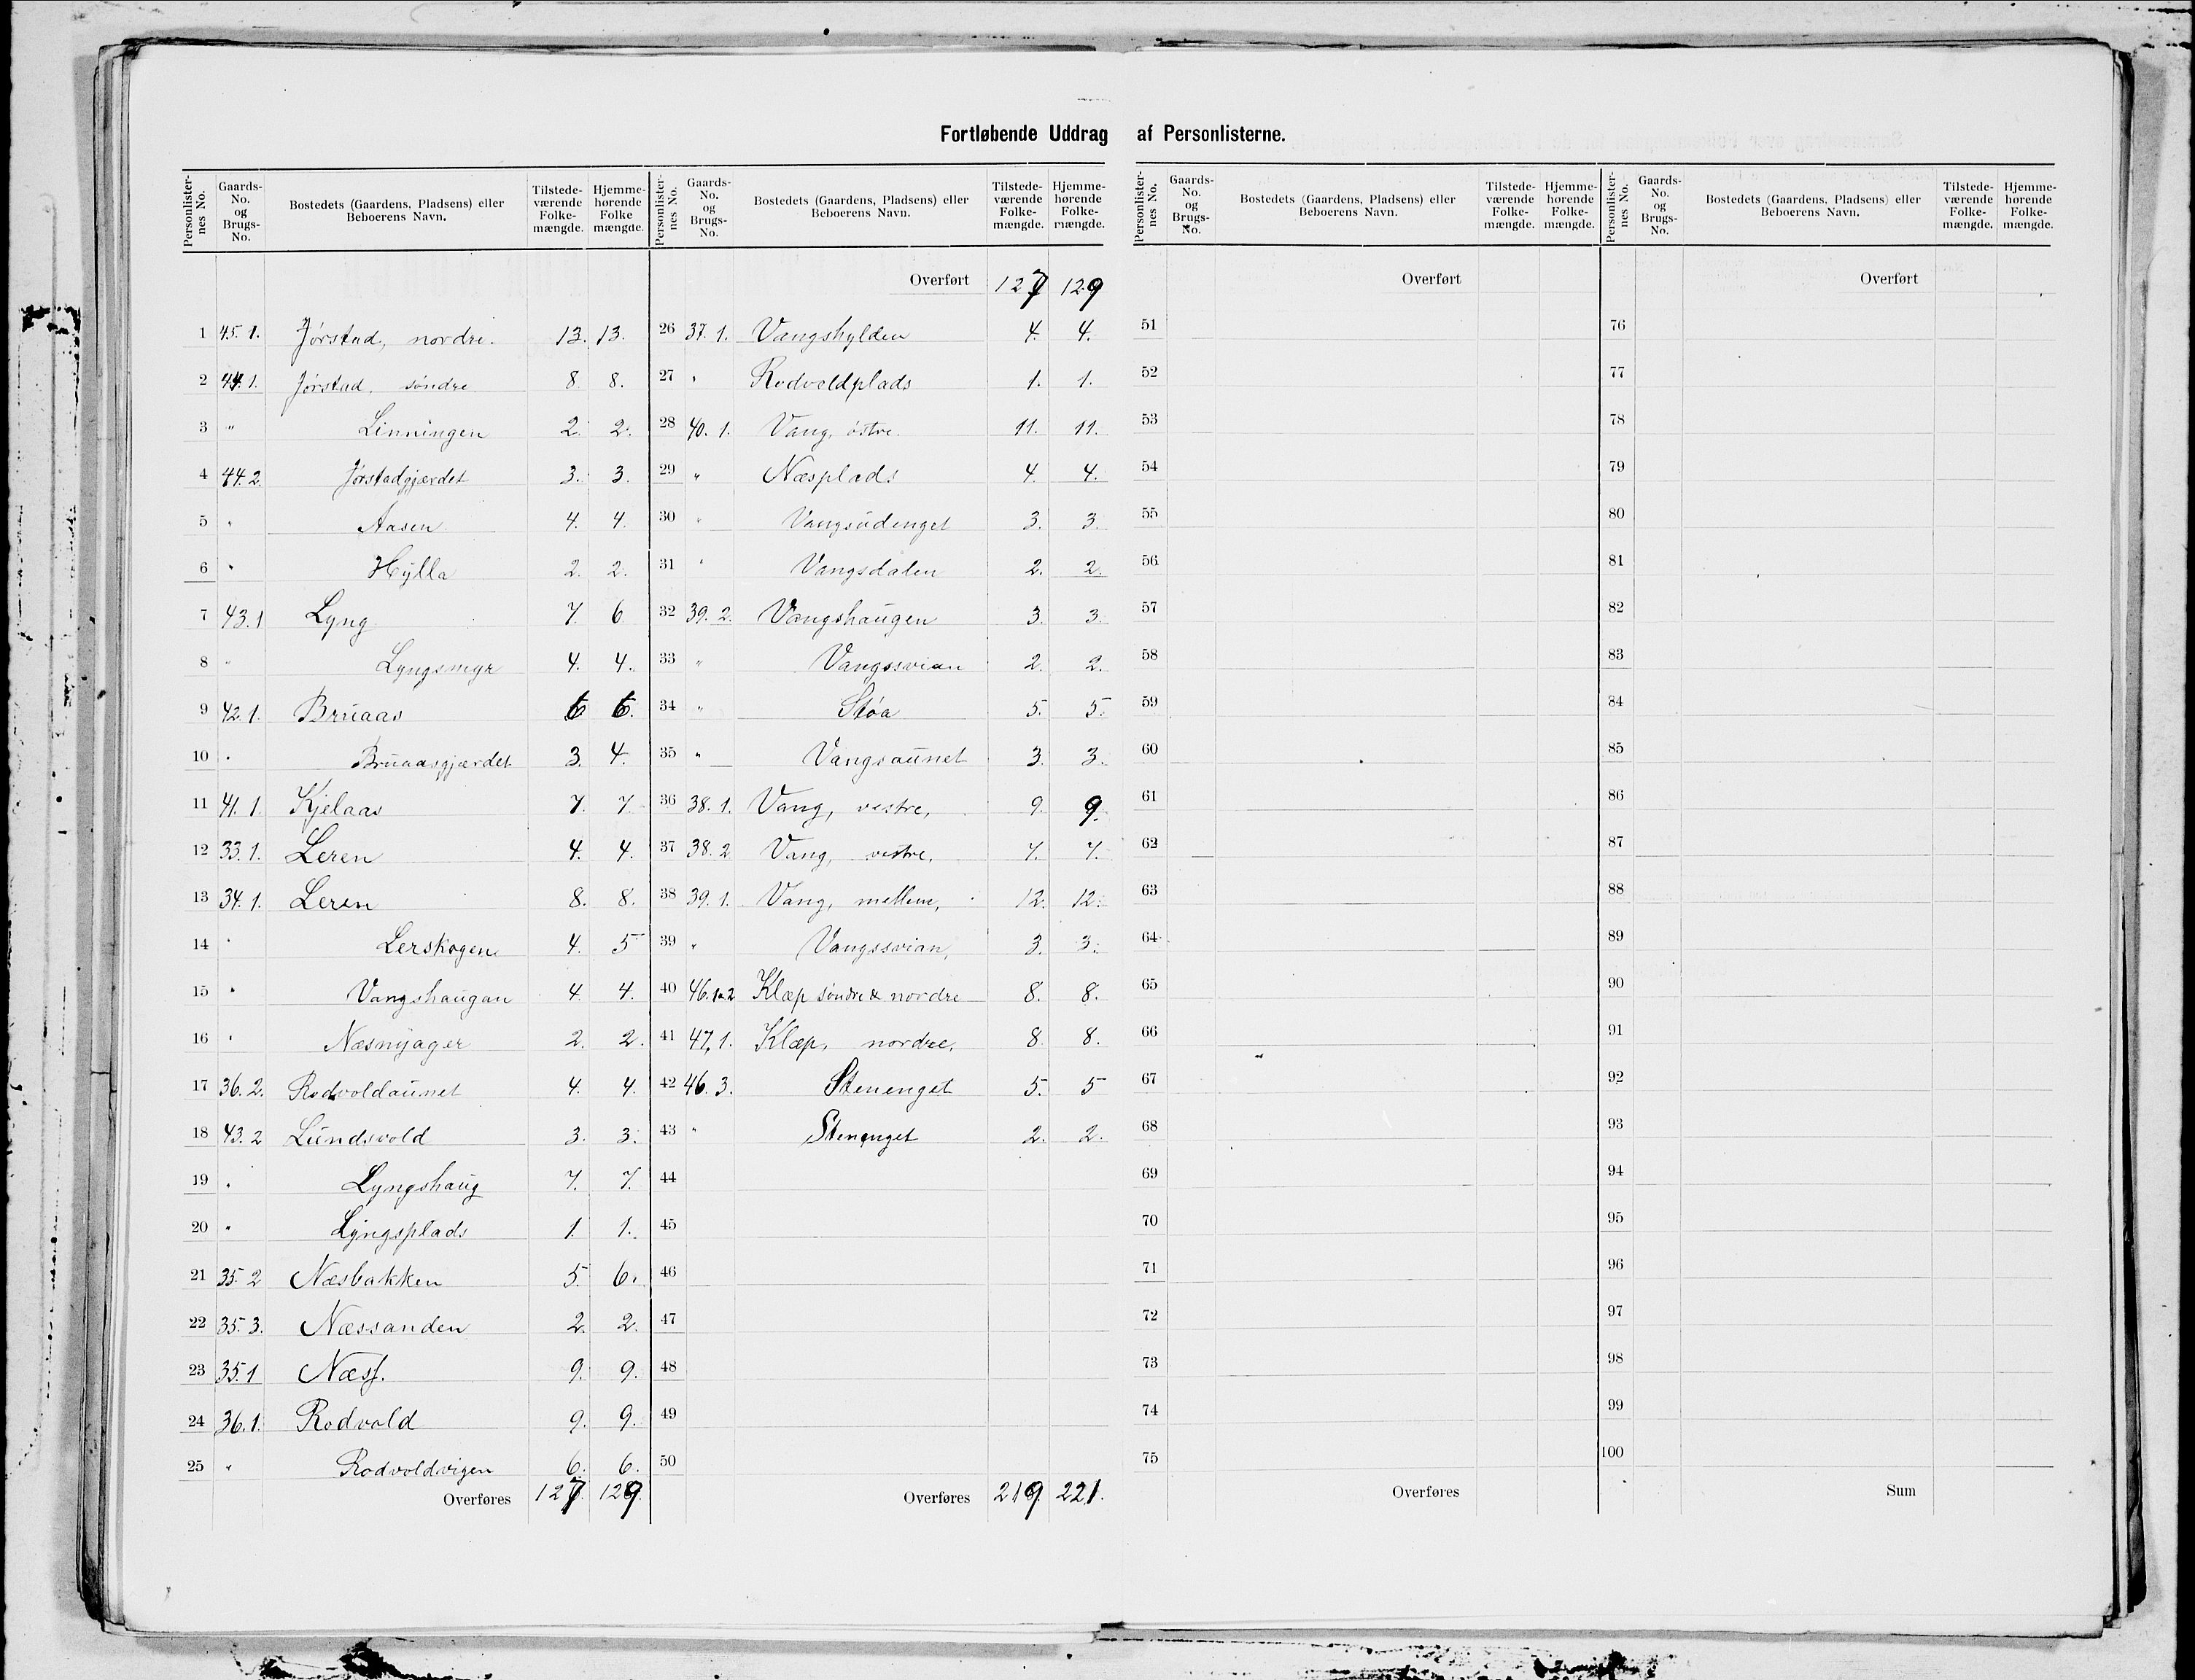 Fortløbende Uddrag af Personlisterne.
Personlister-nes No. Gaards-No. og Brugs-No. Bostedets (Gaardens, Pladsens) eller Beboerens Navn. Tilstede-værende Folke-mængde. Hjemme-hørende Folke mængde.
1 45.1. Jørstad, nordre. 13. 13.
2 44.1. Jørstad, søndre 8 8.
3 " Linningen 2. 2.
4 44.2 Jørstadgjærdet 3. 3.
5 " Aasen 4. 4.
6 " Hylla 2. 2.
7 43.1 Lyng 7. 6
8 " Lyngsmyr 4. 4.
9 42.1. Bruaas 6 6.
10 " Bruaasgjærdet 3. 4.
11 41.1. Kjelaas 7. 7.
12 33.1. Leren 4. 4.
13 34.1. Leren 8. 8.
14 " Lerskogen 4. 5
15 " Vangshaugan 4. 4.
16 " Næsnyager 2. 2.
17 36.2. Rodvoldaunet 4. 4.
18 43.2 Lundsvold 3. 3.
19 " Lyngshaug 7. 7.
20 " Lyngsplads 1. 1.
21 35.2 Næsbakken 5. 6.
22 35.3. Næssanden 2. 2.
23 35.1 Næss. 9. 9.
24 36.1. Rodvold 9. 9.
25 " Rodvoldvigen 6. 6.
Overføres 127. 129.
Personlister-nes No. Gaards-No. og Brugs-No. Bostedets (Gaardens, Pladsens) eller Beboerens Navn. Tilstede-værende Folke-mængde. Hjemme-hørende Folke-mængde.
Overført 127 129
26 37.1. Vangshylden 4. 4.
27 " Rodvoldplads 1. 1.
28 40.1. Vang, østre. 11. 11.
29 " Næsplads 4. 4.
30 " Vangsudenget 3. 3.
31 " Vangsdalen 2. 2.
32 39.2. Vangshaugen 3. 3.
33 " Vangssvian 2. 2.
34 " Støa 5. 5.
35 " Vangsaunet 3. 3.
36 38.1. Vang, vestre, 9. 9.
37 38.2 Vang, vestre, 7. 7.
38 39.1. Vang, mellem, 12. 12.
39 " Vangssvian, 3. 3.
40 46.1&2 Klæp søndre & nordre 8. 8.
41 47.1. Klæp, nordre. 8. 8.
42 46.3. Stenenget 5. 5
43 " Stenenget 2. 2.
44
45
46
47
48
49
50
Overføres 219. 221.
Personlister-nes No. Gaards-No. og Brugs-No. Bostedets (Gaardens, Pladsens) eller Beboerens Navn. Tilstede-værende Folke-mængde. Hjemme-hørende Folke-mængde.
Overført
51
52
53
54
55
56
57
58
59
60
61
62
63
64
65
66
67
68
69
70
71
72
73
74
75
Overføres
Personlister-nes No. Gaards-No. og Brugs-No. Bostedets (Gaardens, Pladsens) eller Beboerens Navn. Tilstede-værende Folke-mængde. Hjemme-hørende Folke-mængde.
Overført
76
77
78
79
80
81
82
83
84
85
86
87
88
89
90
91
92
93
94
95
96
97
98
99
100
Sum